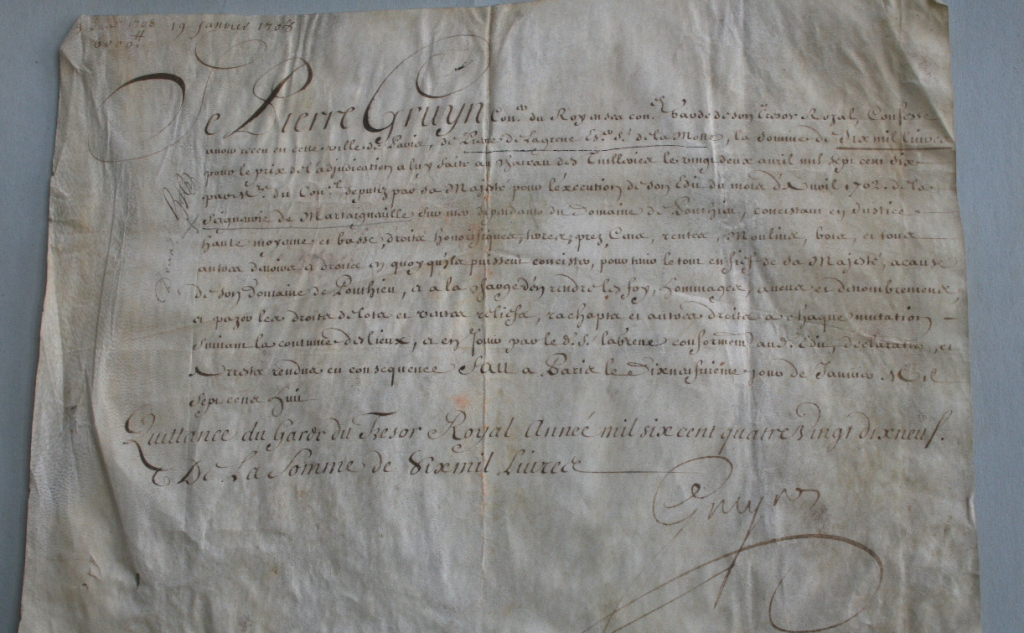 19 Janvier 1708
6000#
Je Pierre Gruyn Conr. du Roy en ses conls. Garde de son Tresor Royal, Confesse
avoir receu en cette ville de Paris, de Pierre de Lagrene Esr. Sr. de la Motte, la somme de Six mil livres
pour le prix de l'adjudication a luy faite au Chateau des Tuilleries le vingt deux avril mil sept cent six
par du Conl. deputez par sa Majesté pour l'execution de son Edit du mois d'Avril 1702. de la
Seigneurie de Martaigneville sur mer dependante du Domaine de Ponthieu, consistant en Justice
haute moyenne et basse droits honorifiques, terres, prez, Cens, rentes, Moulins, bois, et tous
autres devoirs et droits en quoy qu'ils puissent consister, pour tenir le tout en fief de sa Majesté, a cause
de son Domaine de Ponthieu, et a la charge d'en rendre les foy, hommages, aveus et denombremens,
et payer les droits de lots et ventes reliefs, rachapts et autres droits a chaque mutation
suivant la coutume des lieux, et en Jouir par led. Sr. lagrene conformemt. aud. Edit, declaration, et
Arrests rendus en consequence Fait a Paris le Dixneufvieme jour de Janvier Mil
sept cens huit
Quittance du Garde du Tresor Royal Année mil six cent quatre vingt dix neuf.
De La Somme de Six mil Livres
Gruyn